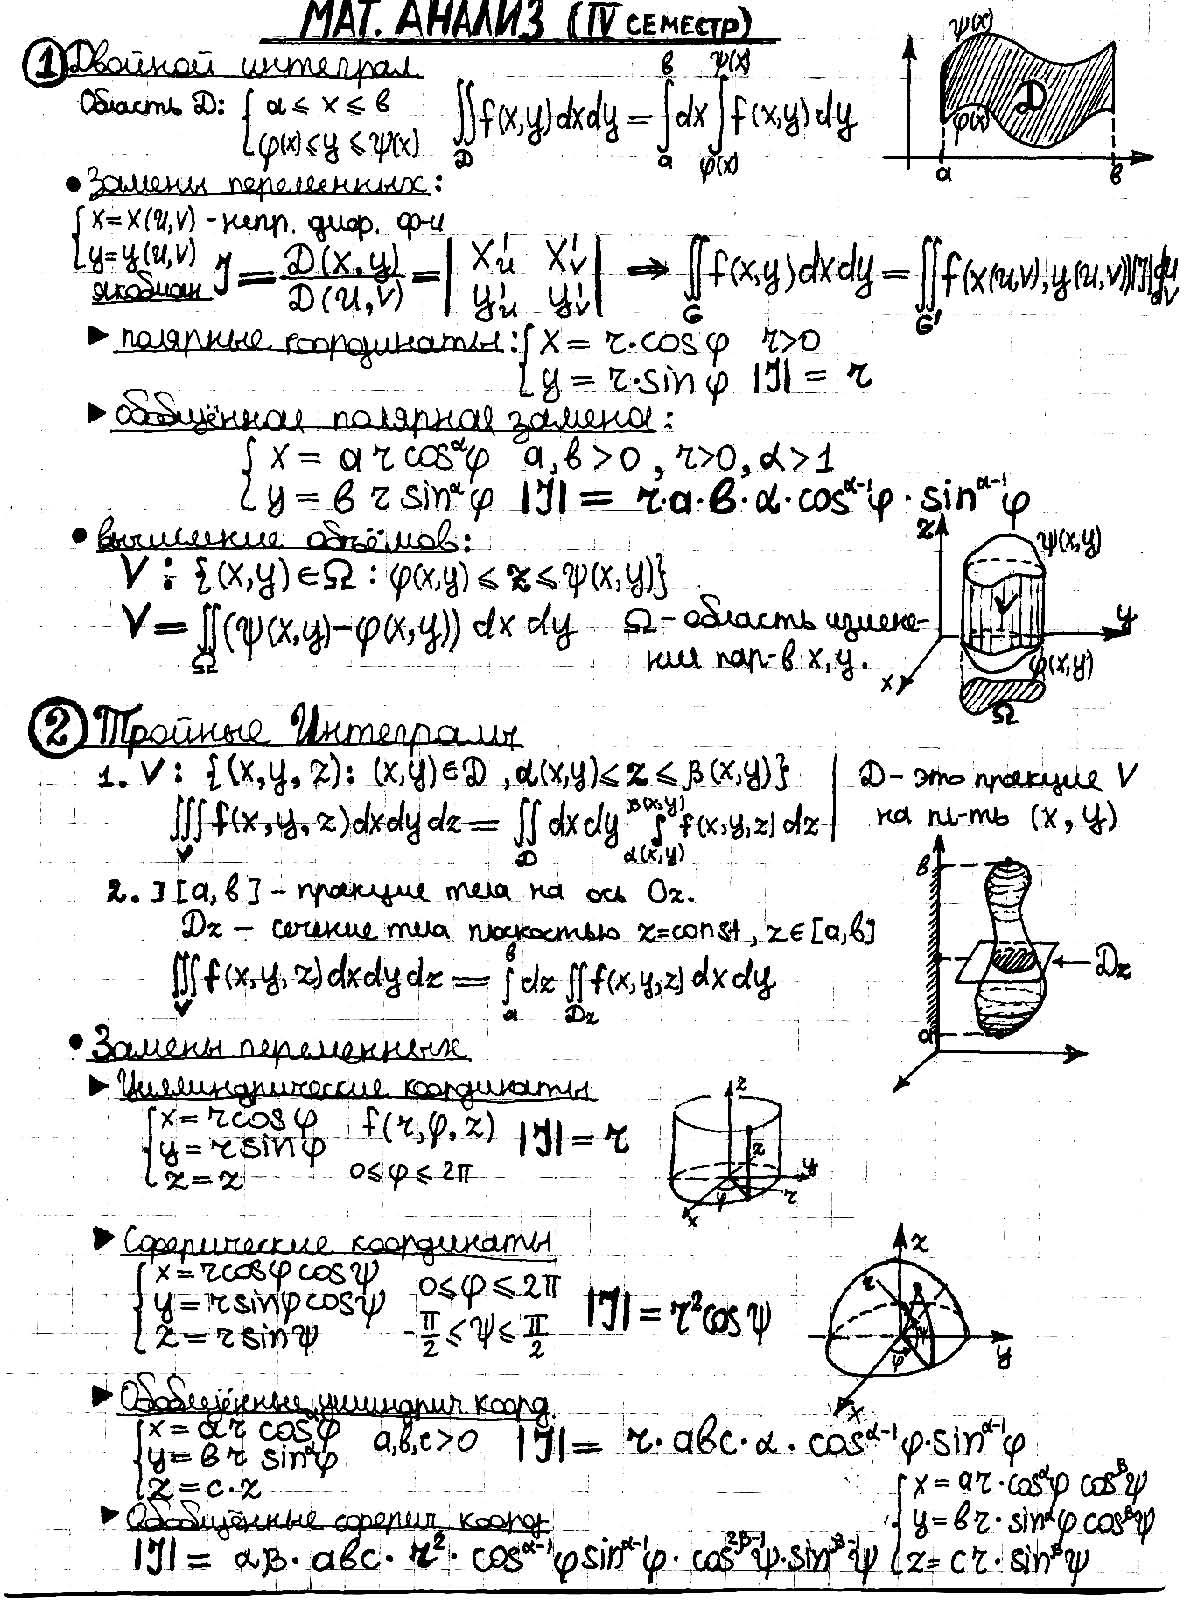 МАТ. АНАЛИЗ (IV СЕМЕСТР)
① Двойной интеграл
Область D: { a ≤ x ≤ b
φ(x) ≤ y ≤ ψ(x)
∬_D f(x,y) dxdy = ∫_a^b dx ∫_{φ(x)}^{ψ(x)} f(x,y) dy
ψ(x)
D
φ(x)
a b
• Замены переменных:
{ x = x(u,v) - непр. диф. ф-и
y = y(u,v)
якобиан J = D(x,y)/D(u,v) = | x'u x'v
y'u y'v | ⇒ ∬_G f(x,y) dxdy = ∬_G' f(x(u,v), y(u,v))|J| du dv
► полярные координаты: { x = r·cos φ r>0
y = r·sin φ |J| = r
► обобщённая полярная замена:
{ x = a r cos^α φ a, b > 0, r>0, α > 1
y = b r sin^α φ |J| = r·a·b·α·cos^{α-1} φ · sin^{α-1} φ
• вычисление объёмов:
V : {(x,y) ∈ Ω : φ(x,y) ≤ z ≤ ψ(x,y)}
V = ∬_Ω (ψ(x,y) - φ(x,y)) dx dy Ω - область измене-
нии пар-в x, y.
z
ψ(x,y)
V
y
φ(x,y)
x
Ω
② Тройные Интегралы
1. V : {(x, y, z): (x,y) ∈ D, α(x,y) ≤ z ≤ β(x,y)} | D - это проекция V
на пл-ть (x, y)
∭_V f(x, y, z) dxdydz = ∬_D dxdy ∫_{α(x,y)}^{β(x,y)} f(x,y,z) dz
2. ] [a, b] - проекция тела на ось Oz.
Dz - сечение тела плоскостью z=const, z∈[a,b]
∭_V f(x, y, z) dxdydz = ∫_a^b dz ∬_{Dz} f(x,y,z) dxdy
b
Dz
a
• Замены переменных
► Цилиндрические координаты
{ x = r cos φ f(r, φ, z) |J| = r
y = r sin φ
z = z 0 ≤ φ ≤ 2π
z
z
y
φ
r
x
► Сферические координаты
{ x = r cos φ cos ψ 0 ≤ φ ≤ 2π
y = r sin φ cos ψ |J| = r² cos ψ
z = r sin ψ -π/2 ≤ ψ ≤ π/2
z
r
ψ
φ
y
x
► Обобщённые цилиндрич коорд.
{ x = a r cos^α φ a,b,c>0 |J| = r·abc·α·cos^{α-1} φ·sin^{α-1} φ
y = b r sin^α φ
z = c·z
► Обобщённые сферич коорд
{ x = ar·cos^α φ cos^β ψ
y = br·sin^α φ cos^β ψ
z = cr·sin^β ψ
|J| = αβ·abc·r²·cos^{α-1} φ sin^{α-1} φ·cos^{2β-1} ψ·sin^{β-1} ψ